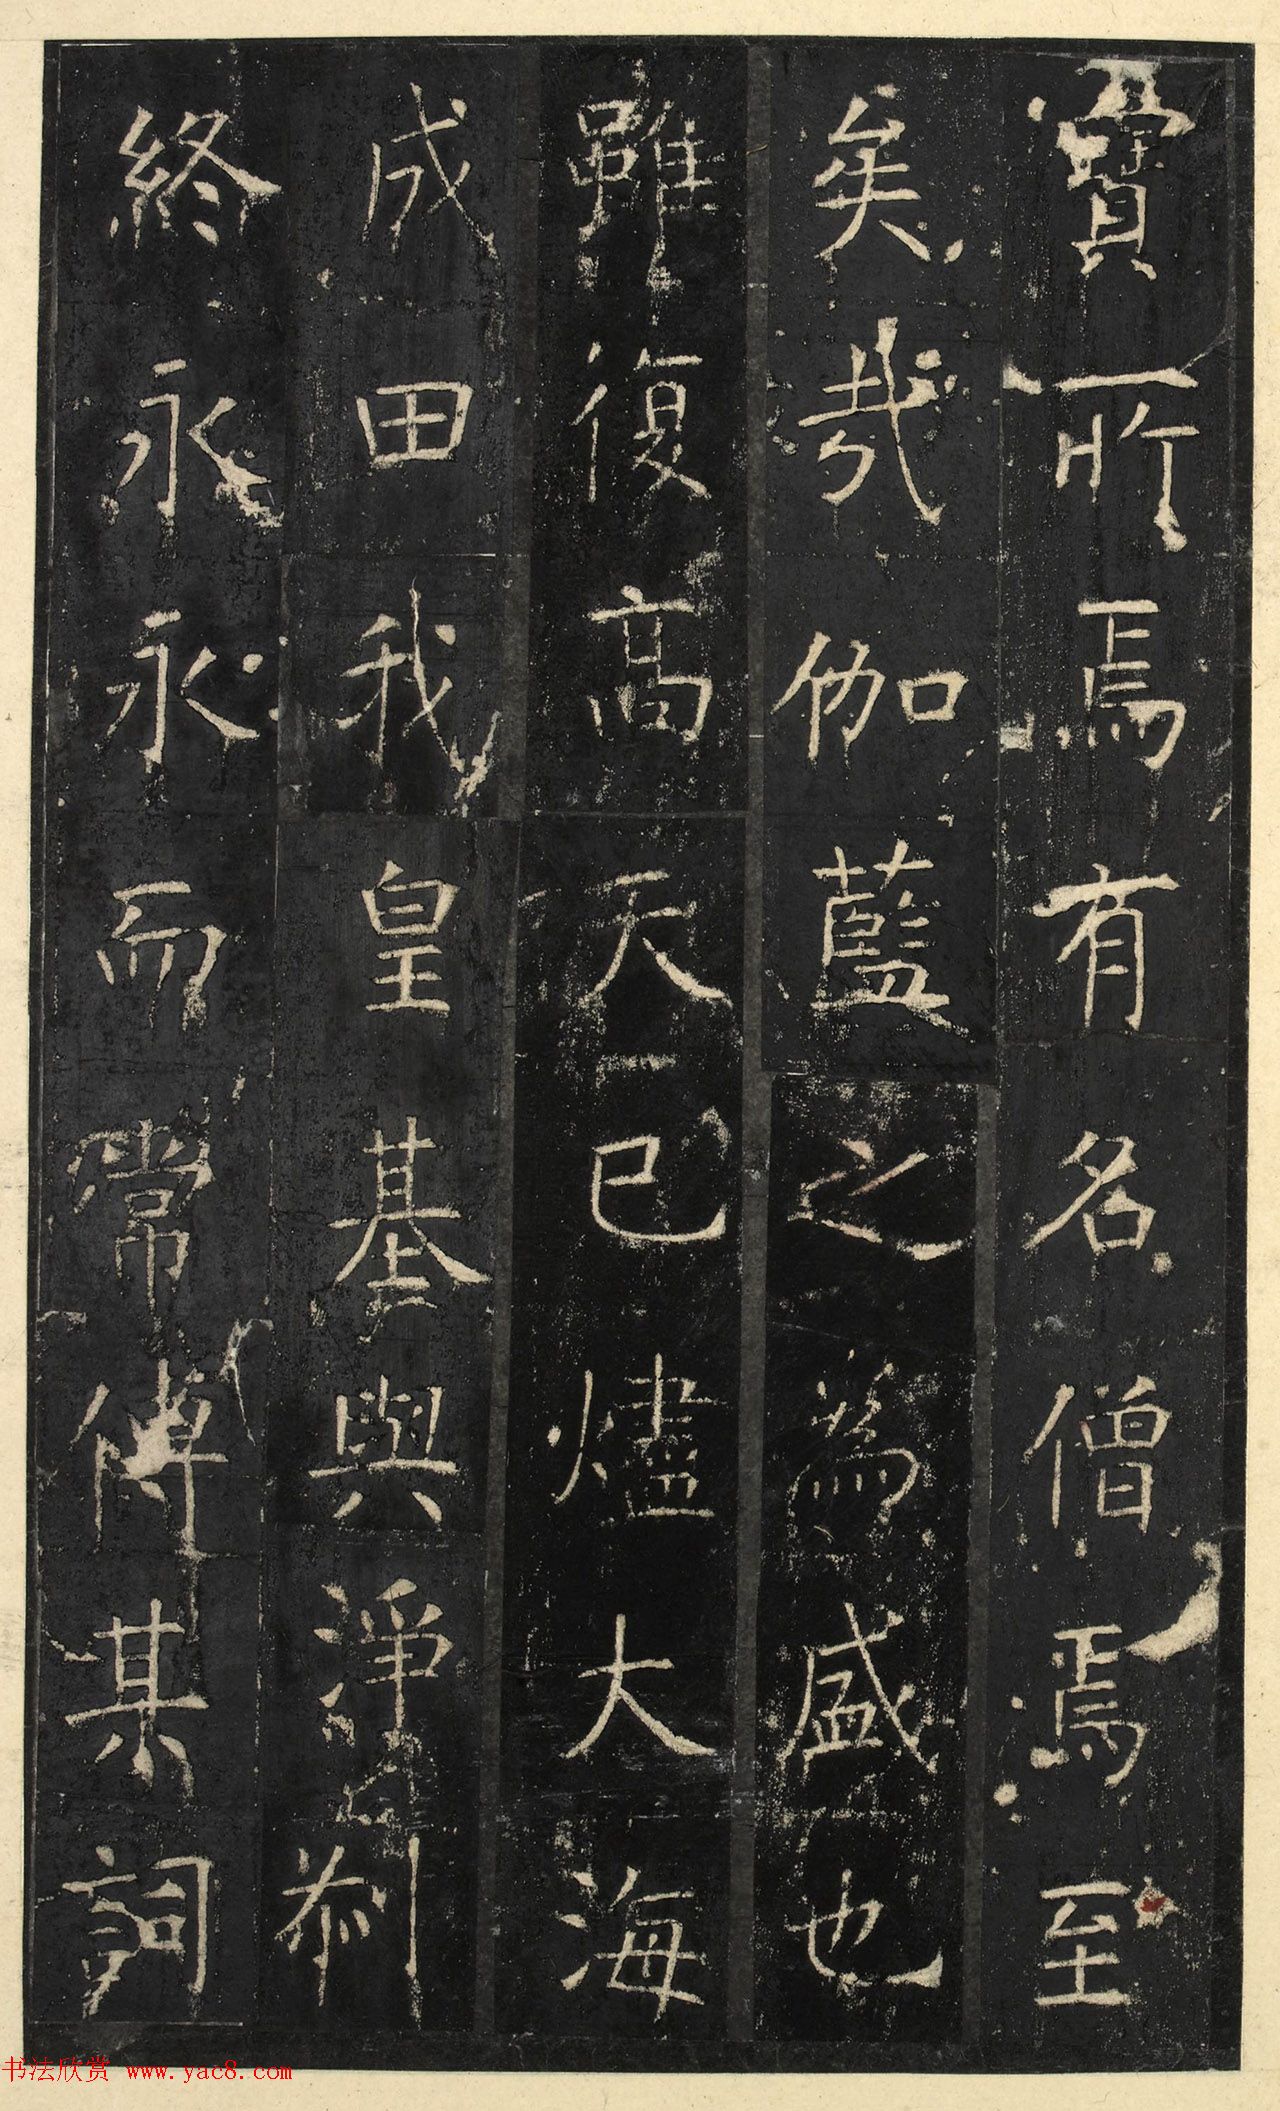 寶所焉有名僧焉至
矣哉伽藍之為盛也
雖復高天已燼大海
成田我皇基與淨刹
終永永而常傳其詞
书法欣赏 www.yac8.com